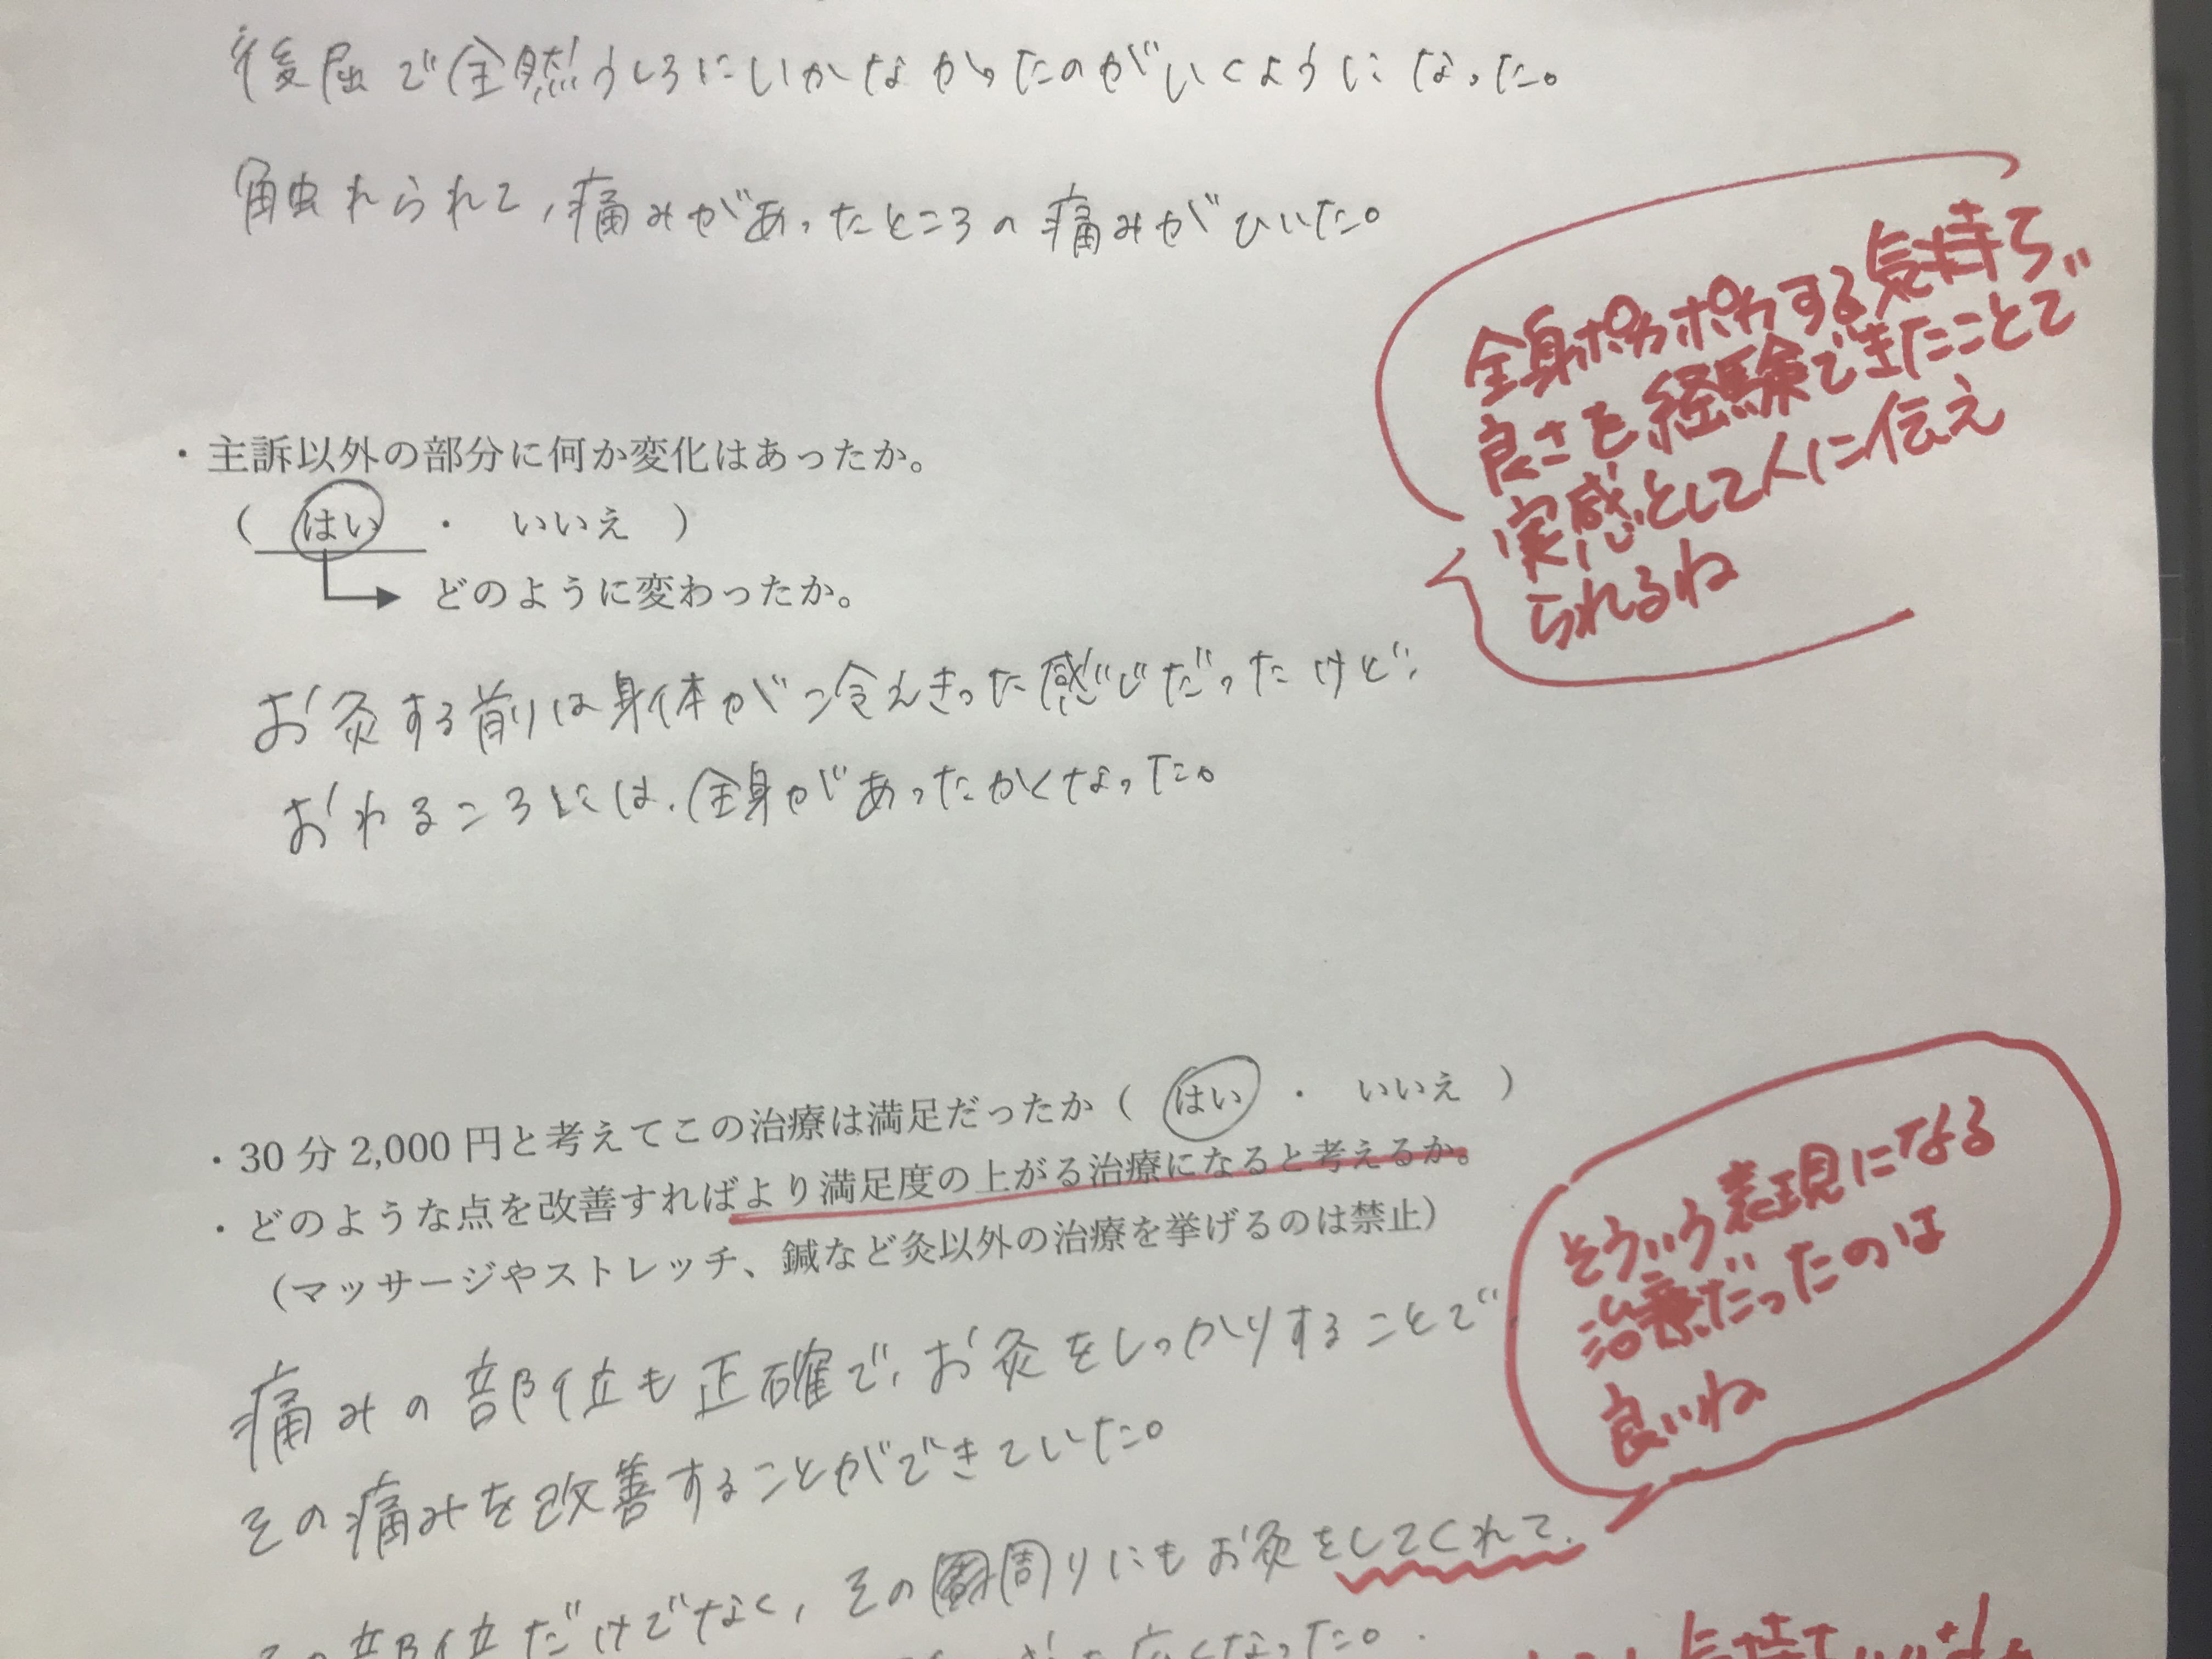 後屈で全然うしろにいかなかったのがいくようになった。
触れられて、痛みがあったところの痛みがひいた。
全身ポカポカする気持ち
良さを経験できたことで
実感として人に伝え
られるね
・主訴以外の部分に何か変化はあったか。
（ はい ・ いいえ ）
どのように変わったか。
お灸する前は身体が冷えきった感じだったけど、
おわるころには、全身があったかくなった。
・30分2,000円と考えてこの治療は満足だったか（ はい ・ いいえ ）
・どのような点を改善すればより満足度の上がる治療になると考えるか。
（マッサージやストレッチ、鍼など灸以外の治療を挙げるのは禁止）
そういう表現になる
治療だったのは
良いね
痛みの部位も正確で、お灸をしっかりすることで
その痛みを改善することができていた。
その部位だけでなく、その周りにもお灸をしてくれて、
くなった。
気持